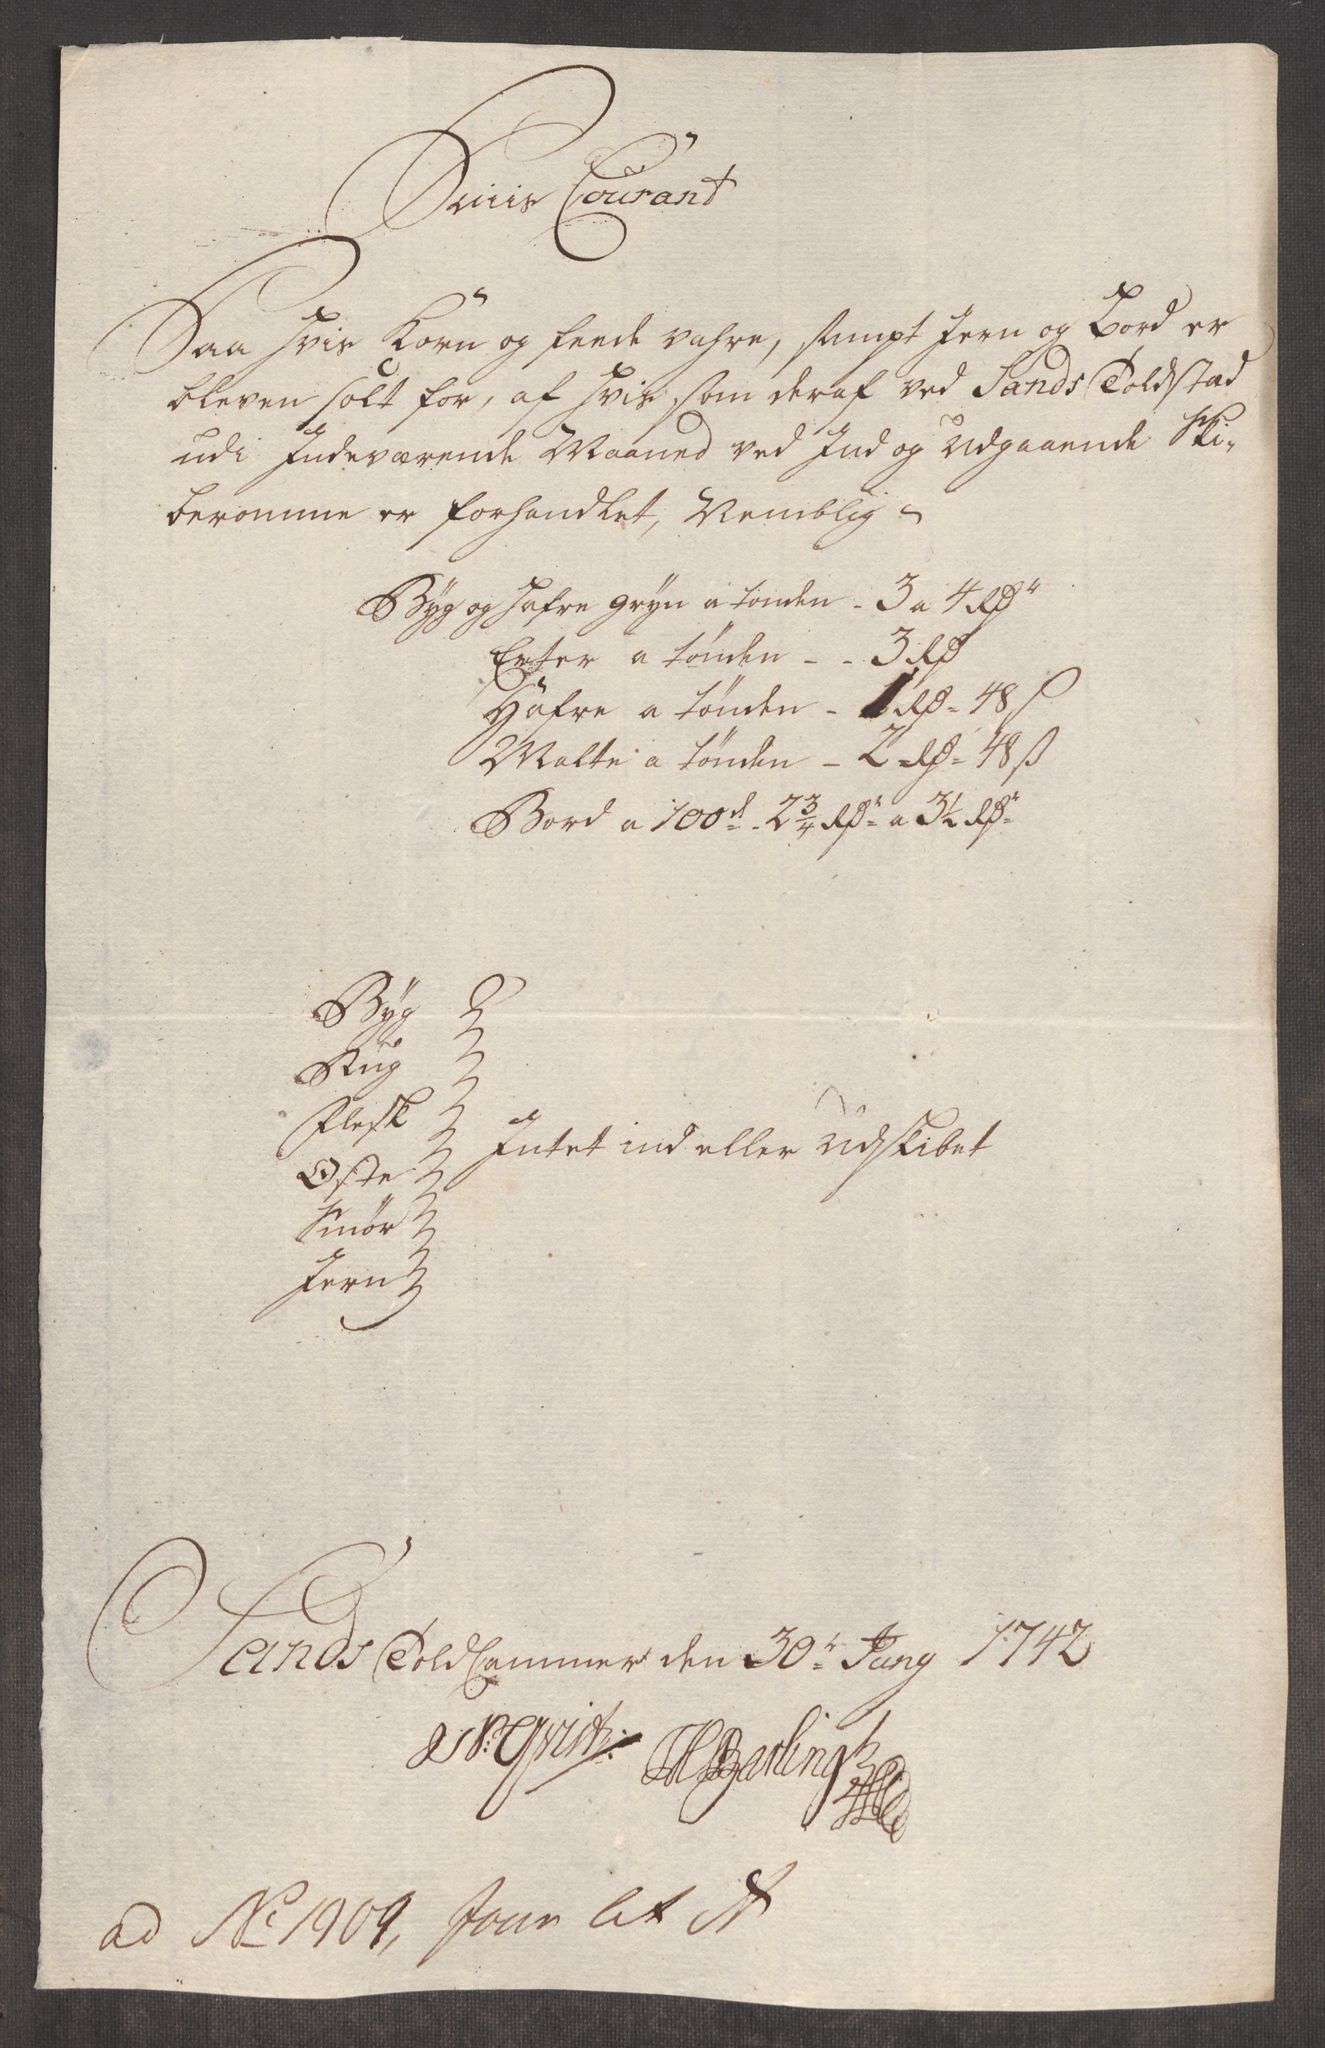 Priis Courant
Paa hvis Korn og feede vahre, sampt Jern og Bord er
bleven solt for, af hvis som deraf ved Sands Toldstad
udi Indeværende Maaned ved Ind og Udgaaende Ski-
beromme er forhandlet, Nemblig
Byg og Hafre gryn a tønden - 3 a 4 Rdr
Erter a tønden - - 3 Rd
Hafre a tønden - 1 Rd - 48 ß
Malte a tønden - 2 Rd - 48 ß
Bord a 100d - 2 3/4 Rdr a 3 1/2 Rdr
Byg
Rug
Flesk
Oste
Smør
Jern
Intet ind eller Udskibet
Sands Told Cammer den 30te Juny 1742
Qvist
Barling
ad No 1909, Jour lit A